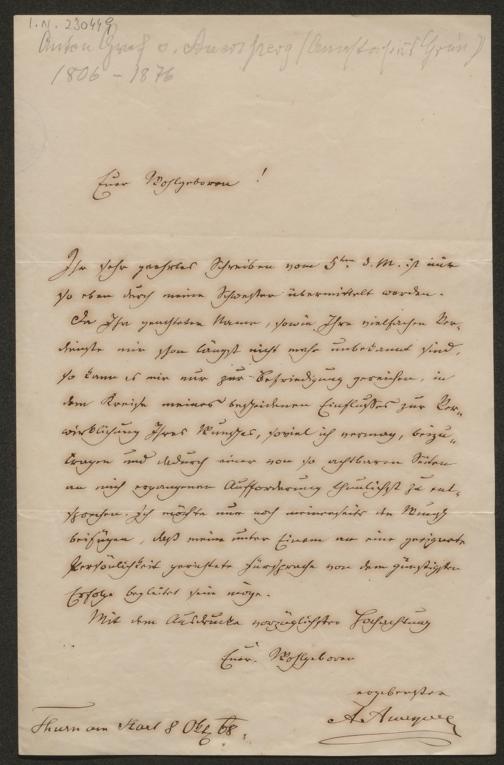 I.N. 230449
Anton Graf v. Auersperg (Anastasius Grün)
1806 - 1876
Euer Wohlgeboren !
Ihr sehr geehrtes Schreiben vom 5ten d. M. ist mir
so eben durch meine Schwester übermittelt worden.
Da Ihr geachteter Name, sowie Ihre vielfachen Ver-
dienste mir schon längst nicht mehr unbekannt sind,
so kann es mir nur zur Befriedigung gereichen, in
dem Kreise meines bescheidenen Einflusses zur Ver-
wirklichung Ihres Wunsches, soviel ich vermag, beizu-
tragen und dadurch einer von so achtbaren Seiten
an mich ergangenen Aufforderung thunlichst zu ent-
sprechen. Ich möchte nur noch meinerseits den Wunsch
beifügen, daß meine unter Einem an eine geeignete
Persönlichkeit gerichtete Fürsprache von dem günstigsten
Erfolge begleitet sein möge.
Mit dem Ausdrucke vorzüglichster Hochachtung
Euer. Wohlgeboren
ergebenster
A. Auersperg
Thurn am Hart 8 Okt 68.